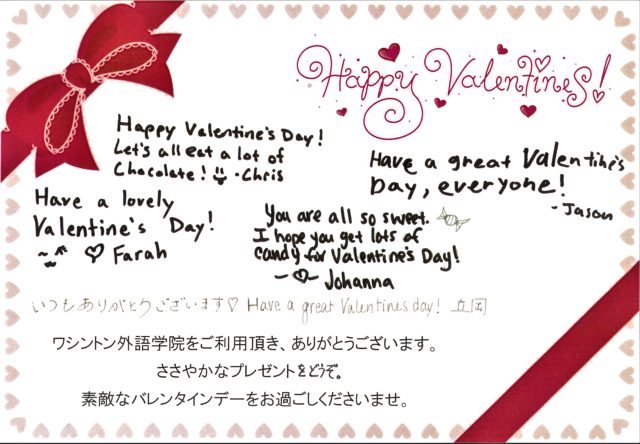 Happy Valentines!
Happy Valentine's Day!
Let's all eat a lot of
Chocolate! - Chris
Have a great Valentine's
Day, everyone!
- Jason
Have a lovely
Valentine's Day!
♡ Farah
You are all so sweet.
I hope you get lots of
candy for Valentine's Day!
-♡- Johanna
いつもありがとうございます♡ Have a great Valentines day! 立岡
ワシントン外語学院をご利用頂き、ありがとうございます。
ささやかなプレゼントをどうぞ。
素敵なバレンタインデーをお過ごしくださいませ。